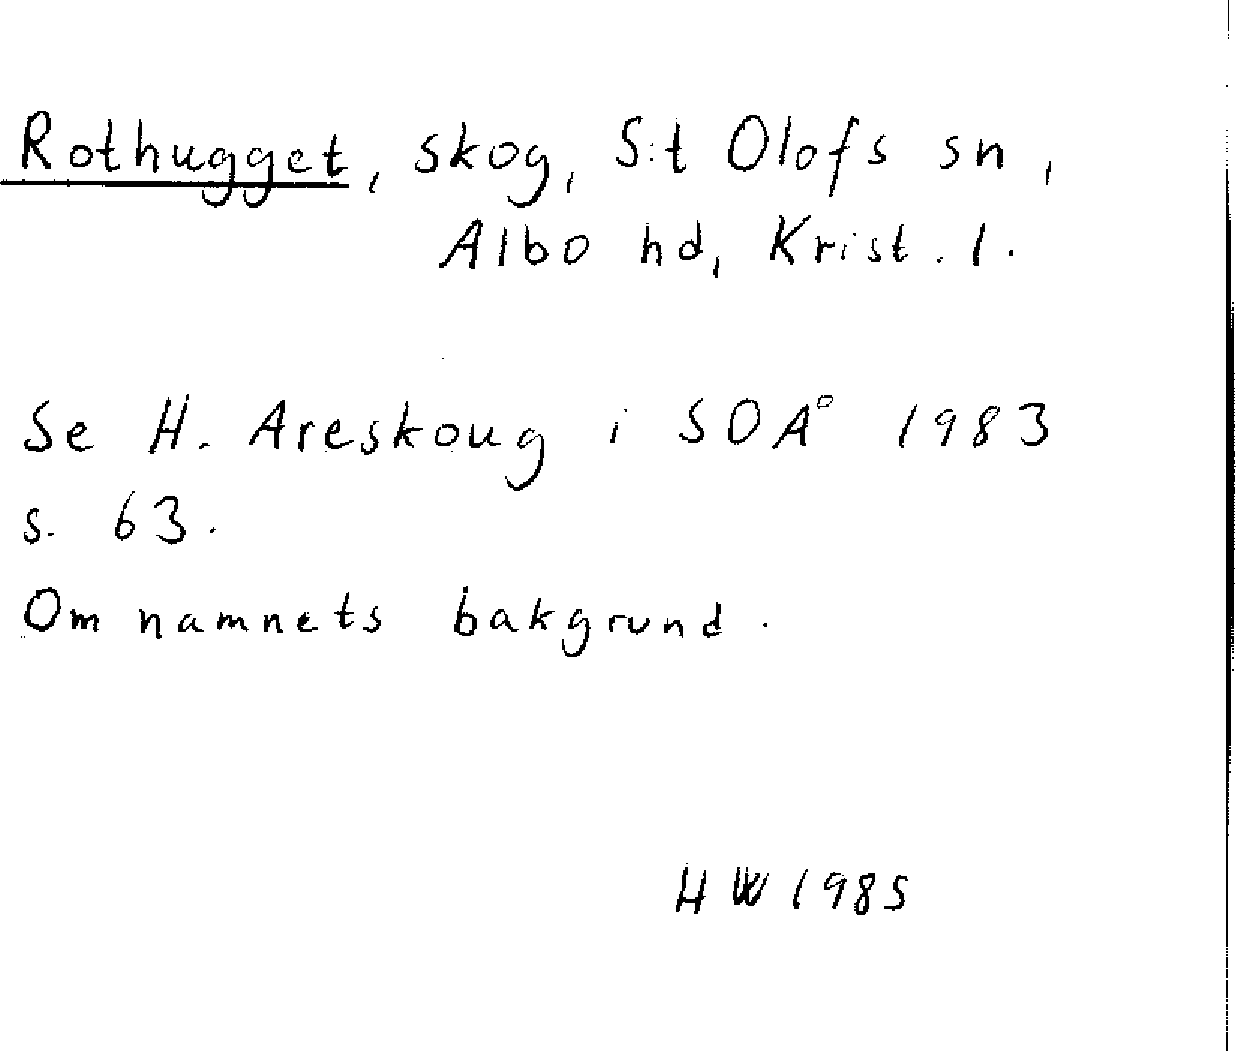 Rothugget, skog, S:t Olofs sn,
Albo hd, Krist. l.
Se H. Areskoug i SOÅ 1983
s. 63.
Om namnets bakgrund.
HW 1985